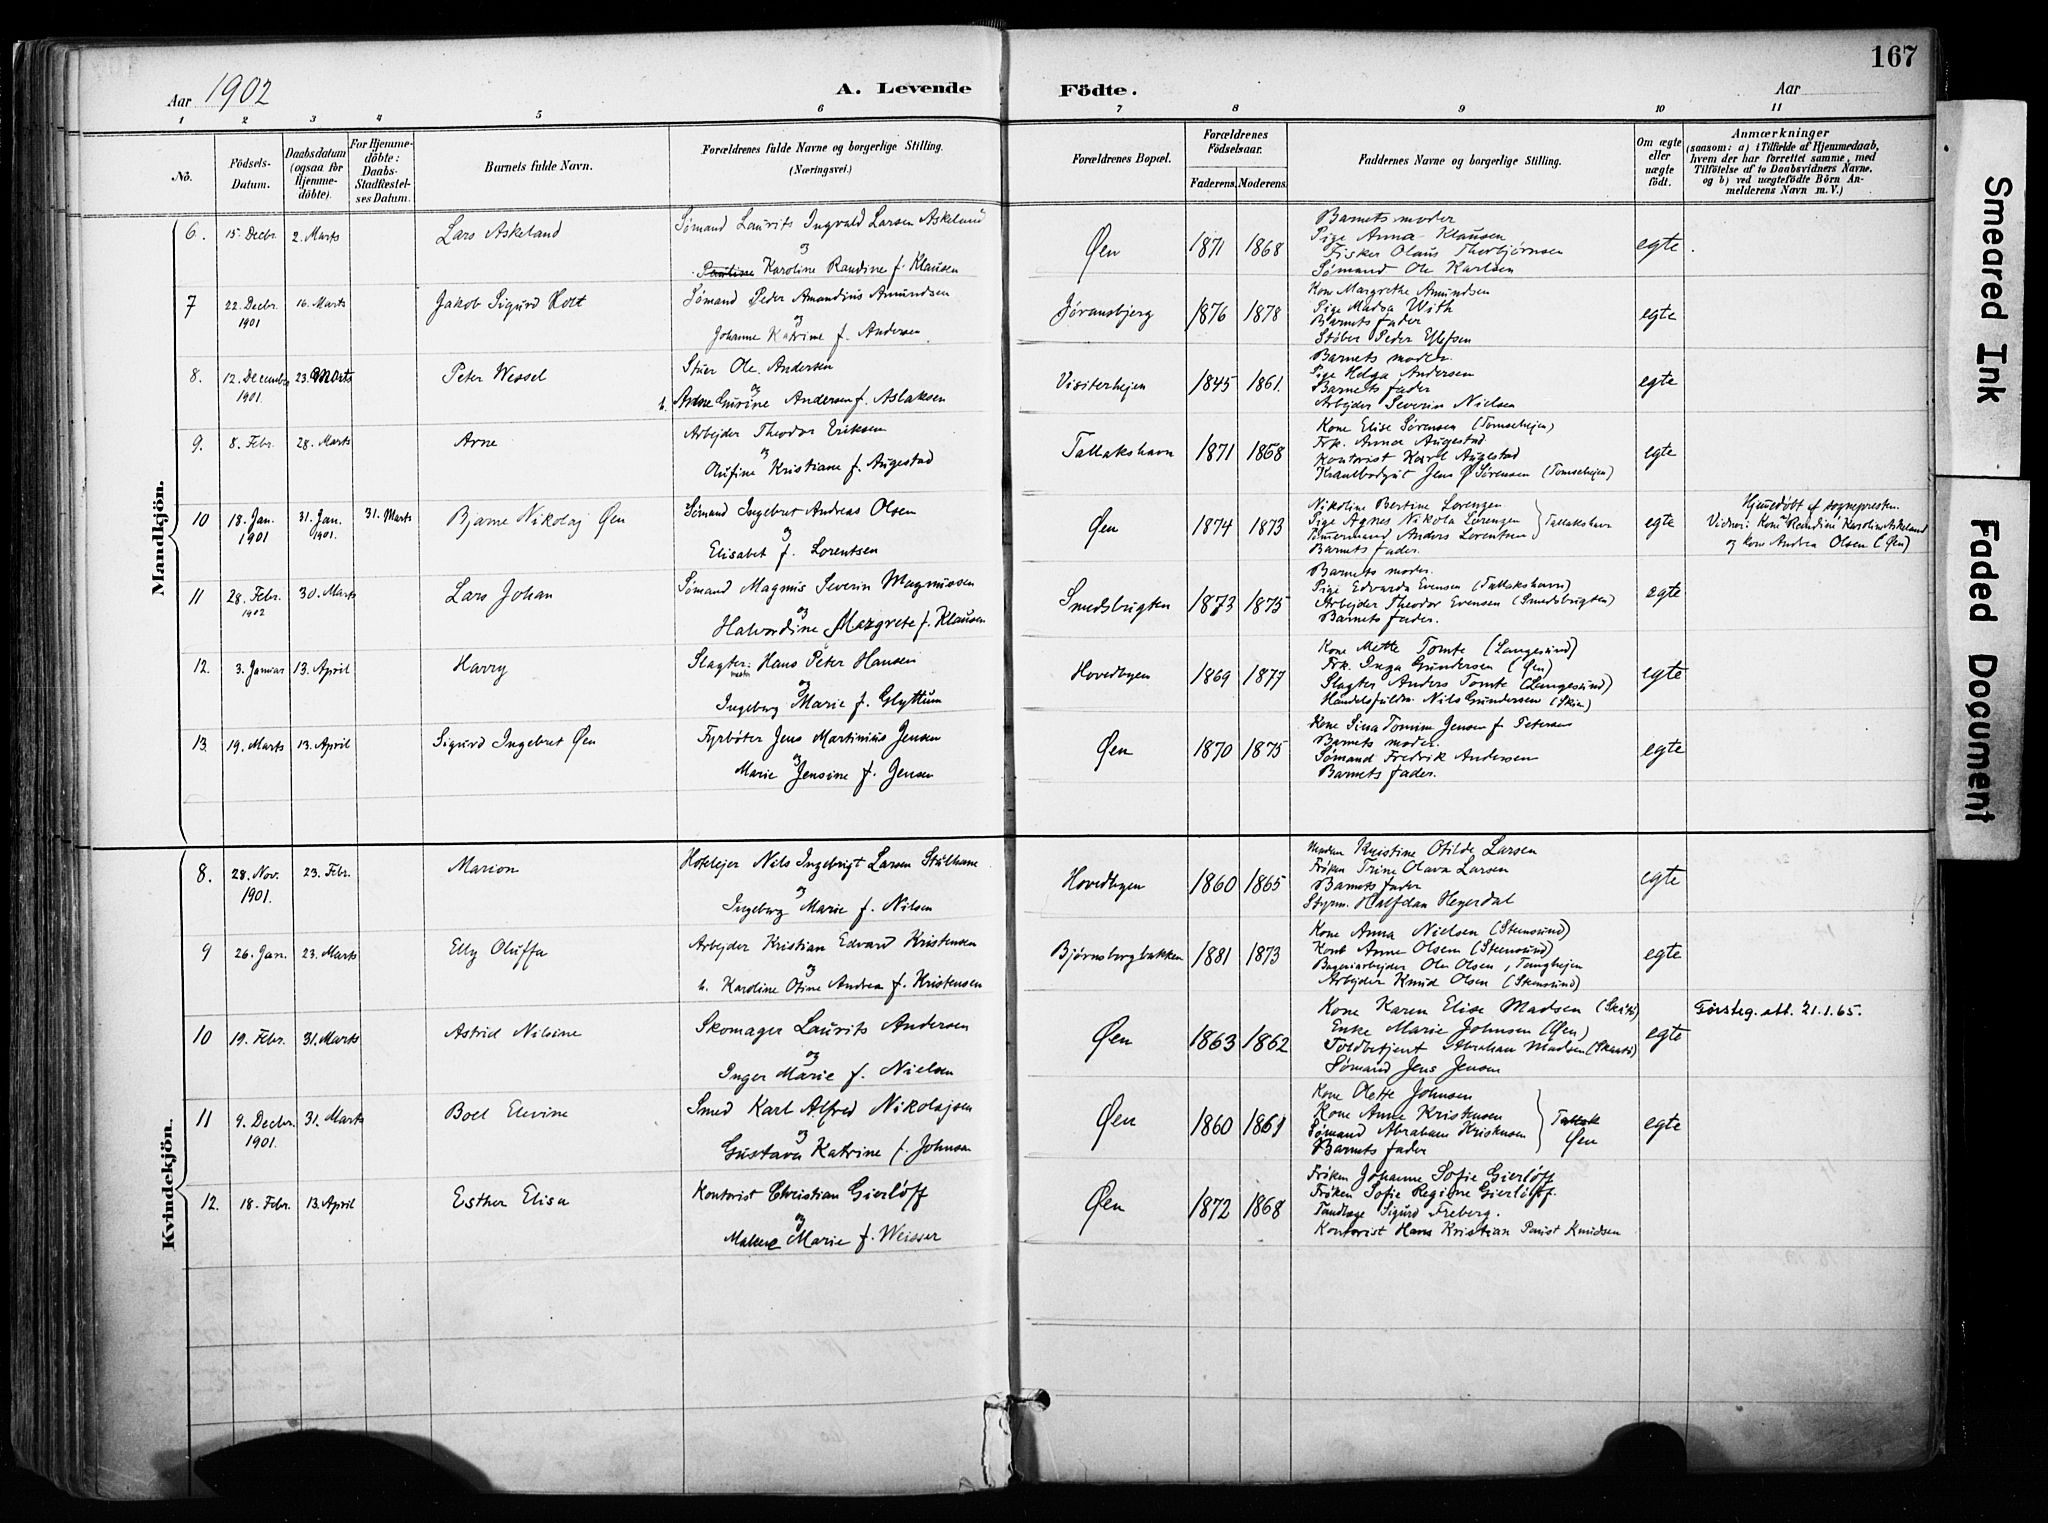 167
Aar 1902
A. Levende
Födte.
Aar
1 2 3 4 5 6 7 8 9 10 11
No.
Födsels-Datum.
Daabsdatum (ogsaa for Hjemmedöbte).
For Hjemmedöbte: Daabs-Stadfæstelses Datum.
Barnets fulde Navn.
Forældrenes fulde Navne og borgerlige Stilling. (Næringsvei.)
Forældrenes Bopæl.
Forældrenes Födselsaar.
Faderens. Moderens.
Faddernes Navne og borgerlige Stilling.
Om ægte eller uægte födt.
Anmærkninger (saasom: a) i Tilfælde af Hjemmedaab, hvem der har forrettet samme, med Tilföielse af to Daabsvidners Navne, og b) ved uægtefödte Börn Anmelderens Navn m. V.)
Mandkjön.
6. 15. Decbr. 2. Marts Lars Askeland
Sømand Laurits Ingvald Larsen Askeland
og
Pauline Karoline Randine f. Klausen
Øen 1871 1868
Barnets moder
Pige Anna Klausen
Fisker Olaus Thorbjørnsen
Sømand Ole Karlsen
egte
7 22. Decbr. 1901 16. Marts Jakob Sigurd Holt
Sømand Peder Amandius Amundsen
og
Johanne Katrine f. Andersen
Jøransbjerg 1876 1878
Kone Margrethe Amundsen
Pige Madsa With
Barnets fader
Støber Peder Ellefsen
egte
8. 12. December 1901. 23. Marts Peter Wessel
Stuer Ole Andersen
og
h. Gurine Andersen f. Aslaksen
Visiterhejen 1845 1861.
Barnets moder.
Pige Helga Andersen
Barnets fader
Arbejder Severin Nielsen
egte
9. 8. Febr. 28. Marts Arne
Arbejder Theodor Eriksen
og
Olufine Kristiane f. Augestad
Tallakshavn 1871 1868
Kone Elise Sørensen (Tomsehejen)
Frk. Anna Augestad
Kontorist Karl Augestad
Jens Ø Sørensen (Tomsehejen)
egte
10 18. Jan. 1901 31. Jan. 1901. 31. Marts Bjarne Nikolaj Øen
Sømand Ingebret Andreas Olsen
og
Elisabet f. Lorentsen
Øen 1874 1873
Nikoline Bertine Lorenzen
Pige Agnes Nikola Lorenzen
Tømermand Anders Lorentsen
Barnets fader.
Tallakshavn
egte
Hjemedøbt af sognepresten.
Vidner: Kone Randine Karoline Askeland
og kone Andrea Olsen (Øen)
11 28. Febr. 1902 30. Marts Lars Johan
Sømand Magnus Severin Magnussen
og
Halvordine Margrete f. Klausen
Smedsbugten 1873 1875
Barnets moder.
Pige Edvarda Evensen (Tallakshavn)
Arbejder Theodor Evensen (Smedsbugten)
Barnets fader.
egte
12. 3. Januar 13. April Harry
Slagtermester Hans Peter Hansen
og
Ingeborg Marie f. Glyttum
Hovedbyen 1869 1877
Kone Mette Tomte (Langesund)
Frk. Inga Gundersen (Øen)
Slagter Anders Tomte (Langesund)
Handelsfuldm. Nils Gundersen (Skien)
egte
13. 19. Marts 13. April Sigurd Ingebret Øen
Fyrbøter Jens Martinius Jensen
og
Marie Jensine f. Jensen
Øen 1870 1875
Kone Sina Tomine Jensen f. Petersen
Barnets moder.
Sømand Fredrik Andersen
Barnets fader.
egte
Kvindekjön.
8. 28. Nov. 1901. 23. Febr. Marion
Hotelejer Nils Ingebrigt Larsen Stulhane
og
Ingeborg Marie f. Nilsen
Hovedbyen 1860 1865
Kristine Otilde Larsen
Frøken Trine Olava Larsen
Barnets fader
Styrm. Halfdan Heyerdal
egte
9 26. Jan. 23. Marts Elly Oluffa
Arbejder Kristian Edvard Kristensen
og
h. Karoline Otine Andrea f. Kristensen
Bjørnsborgbakken 1881 1873
Kone Anna Nielsen (Stensund)
Kone Anne Olsen (Stensund)
Bageriarbejder Ole Olsen, Tanghejen
Arbejder Knud Olsen (Stensund)
egte
10 19. Febr. 31. Marts Astrid Nilsine
Skomager Laurits Andersen
og
Inger Marie f. Nielsen
Øen 1863 1862
Kone Karen Elise Madsen
Enke Marie Johnsen (Øen)
Toldbetjent Abraham Madsen
Sømand Jens Jensen
egte
Görsteg. att. 21.1.65.
11 9. Decbr. 1901. 31. Marts Boel Elevine
Smed Karl Alfred Nikolajsen
og
Gustava Katrine f. Johnsen
Øen 1860 1861
Kone Olette Johnsen
Kone Anne Kristensen
Sømand Abraham Kristensen
Barnets fader
Øen
egte
12. 18. Febr. 13. April Esther Elisa
Kontorist Christian Gierløff
og
Malene Marie f. Weisser
Øen 1872 1868
Frøken Johanne Sofie Gierløff
Frøken Sofie Regine Gierløff.
Tandlæge Sigurd Freberg.
Kontorist Hans Kristian Paust Knudsen
Smeared Ink
Faded Document